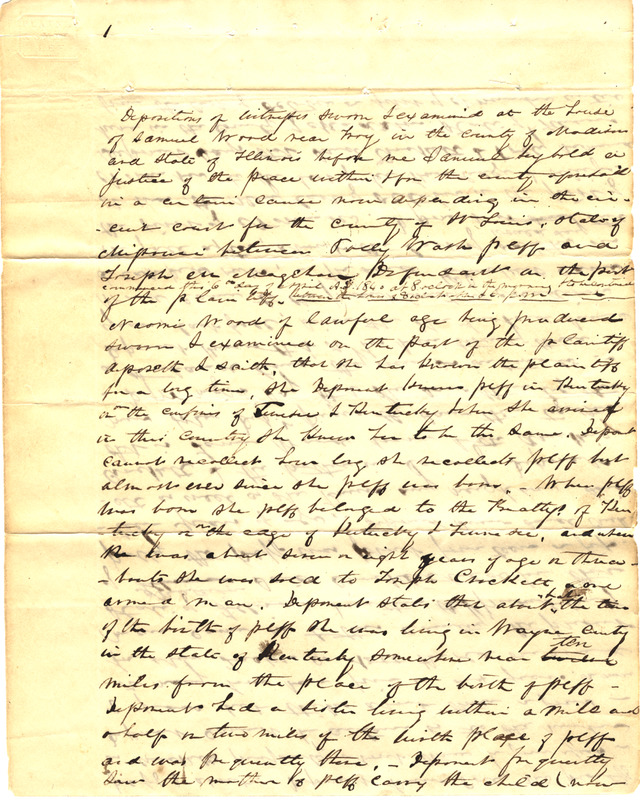 1
Depositions of witnesses sworn & examined at the house
of Samuel Wood near Troy in the county of Madison
and State of Illinois before me Samuel Seybold a
Justice of the peace within & for the county aforesaid
in a certain cause now depending in the cir-
-cuit court for the county of St Louis, State of
Missouri between Polly Wash plff and
Joseph M Magehan Defendant on the part
commenced this 6th day of April A.D. 1840 at 8 oclock in the morning &
of the plaintiff. between the hours of 8 oclock
Naomi Wood of lawful age being produced
sworn & examined on the part of the plaintiff
deposeth & saith, that she has known the plaintiff
for a long time, she Deponent knew plff in Kentucky
on the confines of & Kentucky when she arrived
in this country she knew her to be the same. Deponent
cannot recollect how long she recollects plff but
almost ever since she plff was born. - When plff
was born she plff belonged to the Beattys of Ken
tucky on the edge of Kentucky & Tennessee, and when
she was about seven or eight years of age or there-
-bouts she was sold to Joseph Crockett, a one
armed man. Deponent states that about the time
of the birth of plff she was living in Wayne county
in the state of Kentucky somewhere near ten
miles from the place of the birth of plff -
Deponent had a sister living within a mile and
a half or two miles of the birth place of plff
and was frequently there. - Deponent frequently
saw the mother of plff carry the child (now